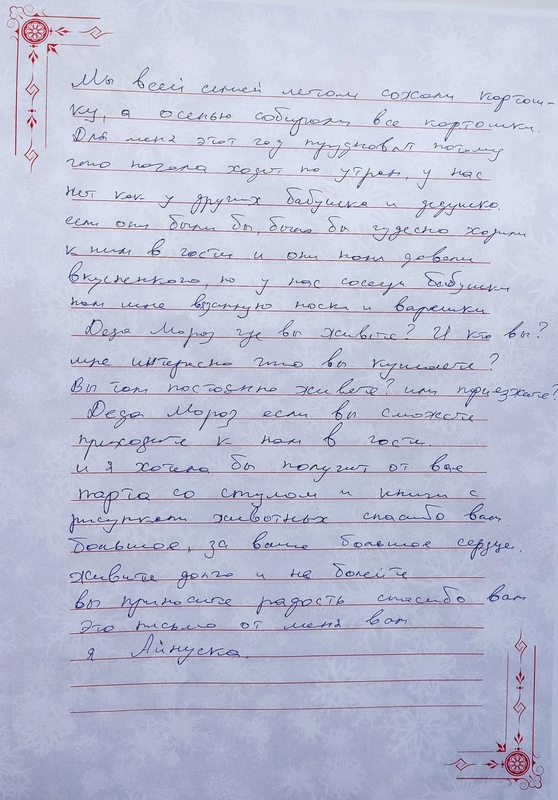 Мы всей семей летом сожали картош-
ку, а осенью собирали все картошки.
Для меня этот год трудноват потому
что начала ходит по утрам, у нас
нет как у других бабушка и дедушка.
если они были бы, было бы чудесно ходили
к ним в гости и они нам довали
вкусненкого, но у нас соседи бабушки
нам мне вязанную носки и варешки
Деда Мороз где вы живёте? И кто вы?
мне интересно что вы кушаете?
Вы там постоянно живёте? или приезжаете?
Деда Мороз если вы сможете
приходите к нам в гости.
и я хотела бы получит от вас
парта со стулом и книги с
рисунками животных спасибо вам
большое, за ваше большое сердце.
живите долго и не болейте
вы приносите радость спасибо вам
Это письмо от меня вам
я Айнуска.